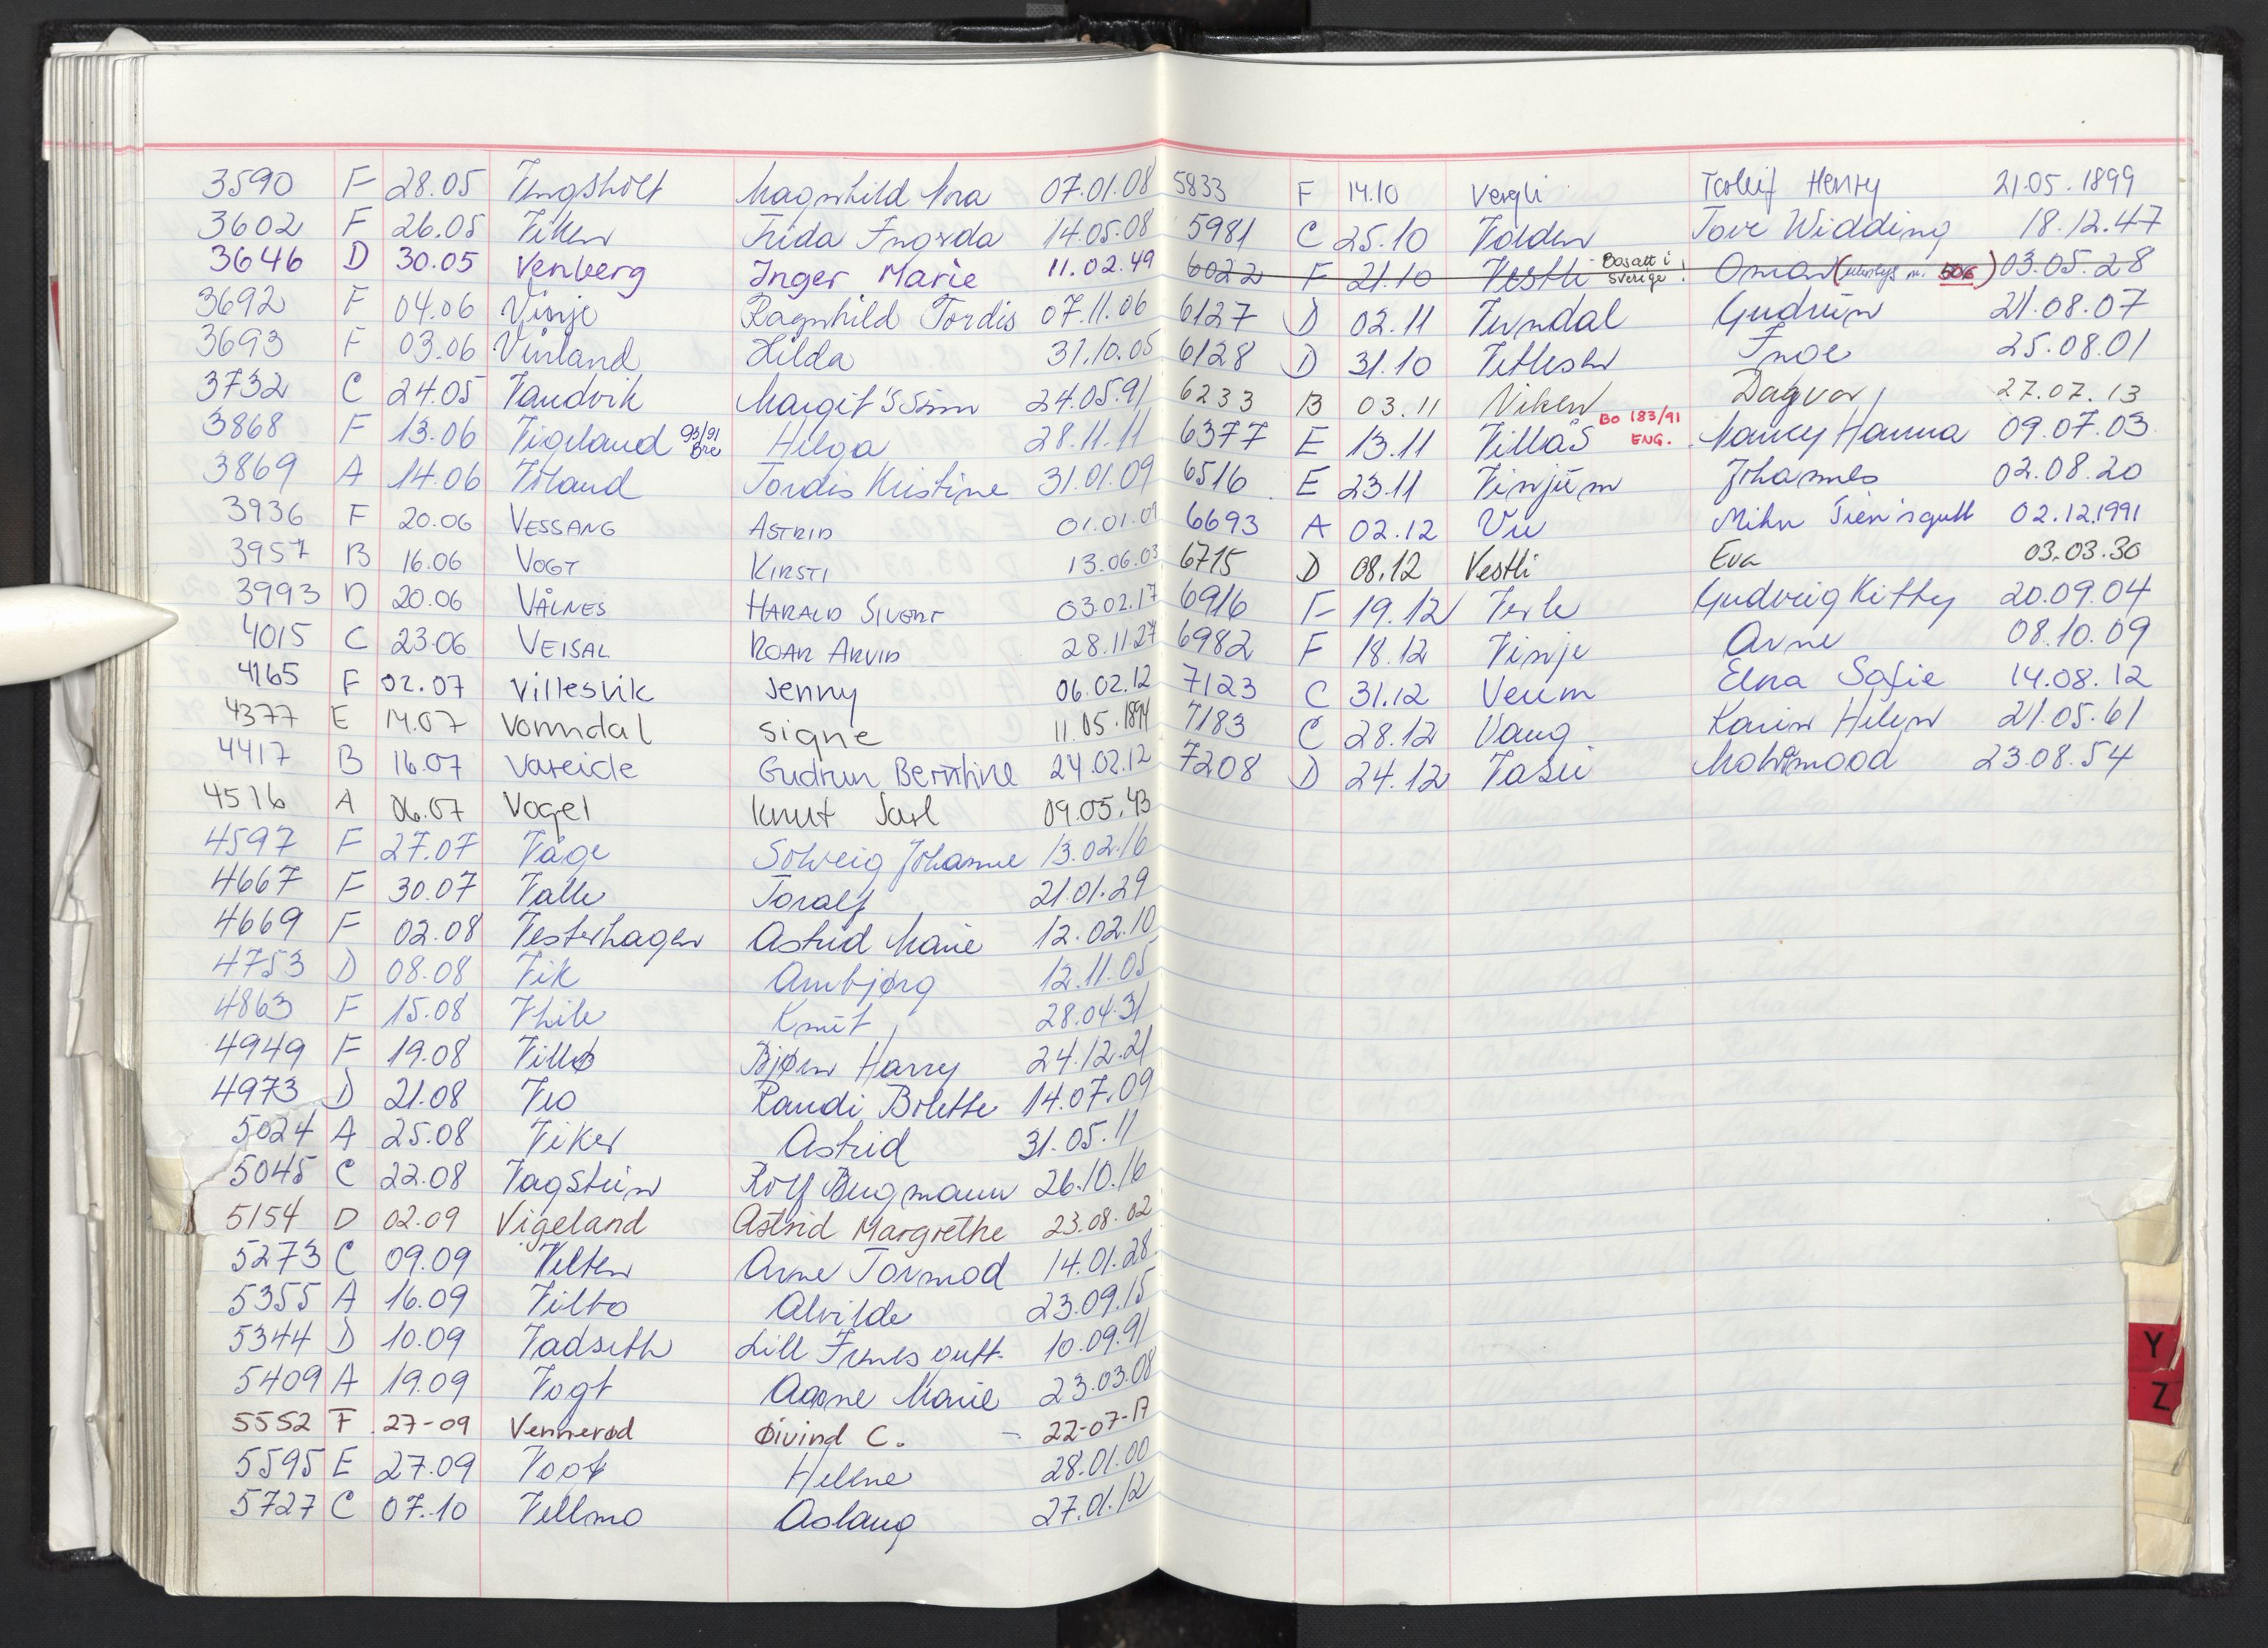 3590 F 28.05 Vengsholt Magnhild Mra 07.01.08
3602 F 26.05 Viken Frida Ingorda 14.05.08
3646 D 30.05 Venberg Inger Marie 11.02.49
3692 F 04.06 Vinje Ragnhild Tordis 07.11.06
3693 F 03.06 Vinland Hilda 31.10.05
3732 C 24.05 Vandvik Margit 24.05.91
3868 F 13.06 Vigeland 93/91 Bre Helga 28.11.11
3869 A 14.06 Tordis Kristine 31.01.09
3936 F 20.06 VESSANG ASTRID 01.01.09
3957 B 16.06 VOGT KIRSTI 13.06.03
3993 D 20.06 VÅLNES HARALD SIVERT 03.02.17
4015 C 23.06 VEISAL ROAR ARVID 28.11.27
4165 F 02.07 Villesvik Jenny 06.02.12
4377 E 14.07 Vormdal Signe 11.05.1894
4417 B 16.07 Vareide Gudrun Berntine 24.02.12
4516 A 06.07 Vogel Knut Jarl 09.05.43
4597 F 27.07 Våge Solveig Johanne 13.02.16
4667 F 30.07 Valle Toralf 21.01.29
4669 F 02.08 Vesterhagen Astrid Marie 12.02.10
4753 D 08.08 Vik Arnbjørg 12.11.05
4863 F 15.08 Knut 28.04.31
4949 F 19.08 Villø Bjørn Harry 24.12.21
4973 D 21.08 Veo Randi Bolette 14.07.09
5024 A 25.08 Viker Astrid 31.05.11
5045 C 22.08 Vagstein Rolf Bugmann 26.10.16
5154 D 02.09 Vigeland Astrid Margrethe 23.08.02
5273 C 09.09 Velten Arne Tormod 14.01.28
5355 A 16.09 Vilbo Alvilde 23.09.15
5344 D 10.09 Vadseth Lill Irenes gutt 10.09.91
5409 A 19.09 Vogt Aanne Marie 23.03.08
5552 F 27-09 Vennerød Øivind C. - 22-07-17
5595 E 27.09 Vogt Hellne 28.01.00
5727 C 07.10 Vellmo Aslaug 27.01.12
5833 F 14.10 Vergli Torleif Henry 21.05.1899
5981 C 25.10 Volden Tove Widding 18.12.47
6022 F 21.10 Vestli Bosatt i Sverige! Omar ( 506) 03.05.28
6127 D 02.11 Verndal Gudrun 21.08.07
6128 D 31.10 Vetlesen Inge 25.08.01
6233 B 03.11 Viken Dagvar 27.07.13
6377 E 13.11 Villås BO 183/91 ENG. Nancy Hanna 09.07.03
6516 E 23.11 Vinjum Johannes 02.08.20
6693 A 02.12 Vu Mihn Tien's gutt 02.12.1991
6715 D 08.12 Vestli Eva 03.03.30
6916 F 19.12 Verle Gudveig Kitty 20.09.04
6982 F 18.12 Vinje Arne 08.10.09
7123 C 31.12 Veum Elna Sofie 14.08.12
7183 C 28.12 Vang Karin Helen 21.05.61
7208 D 24.12 Vasei Mohamood 23.08.54
Y
Z